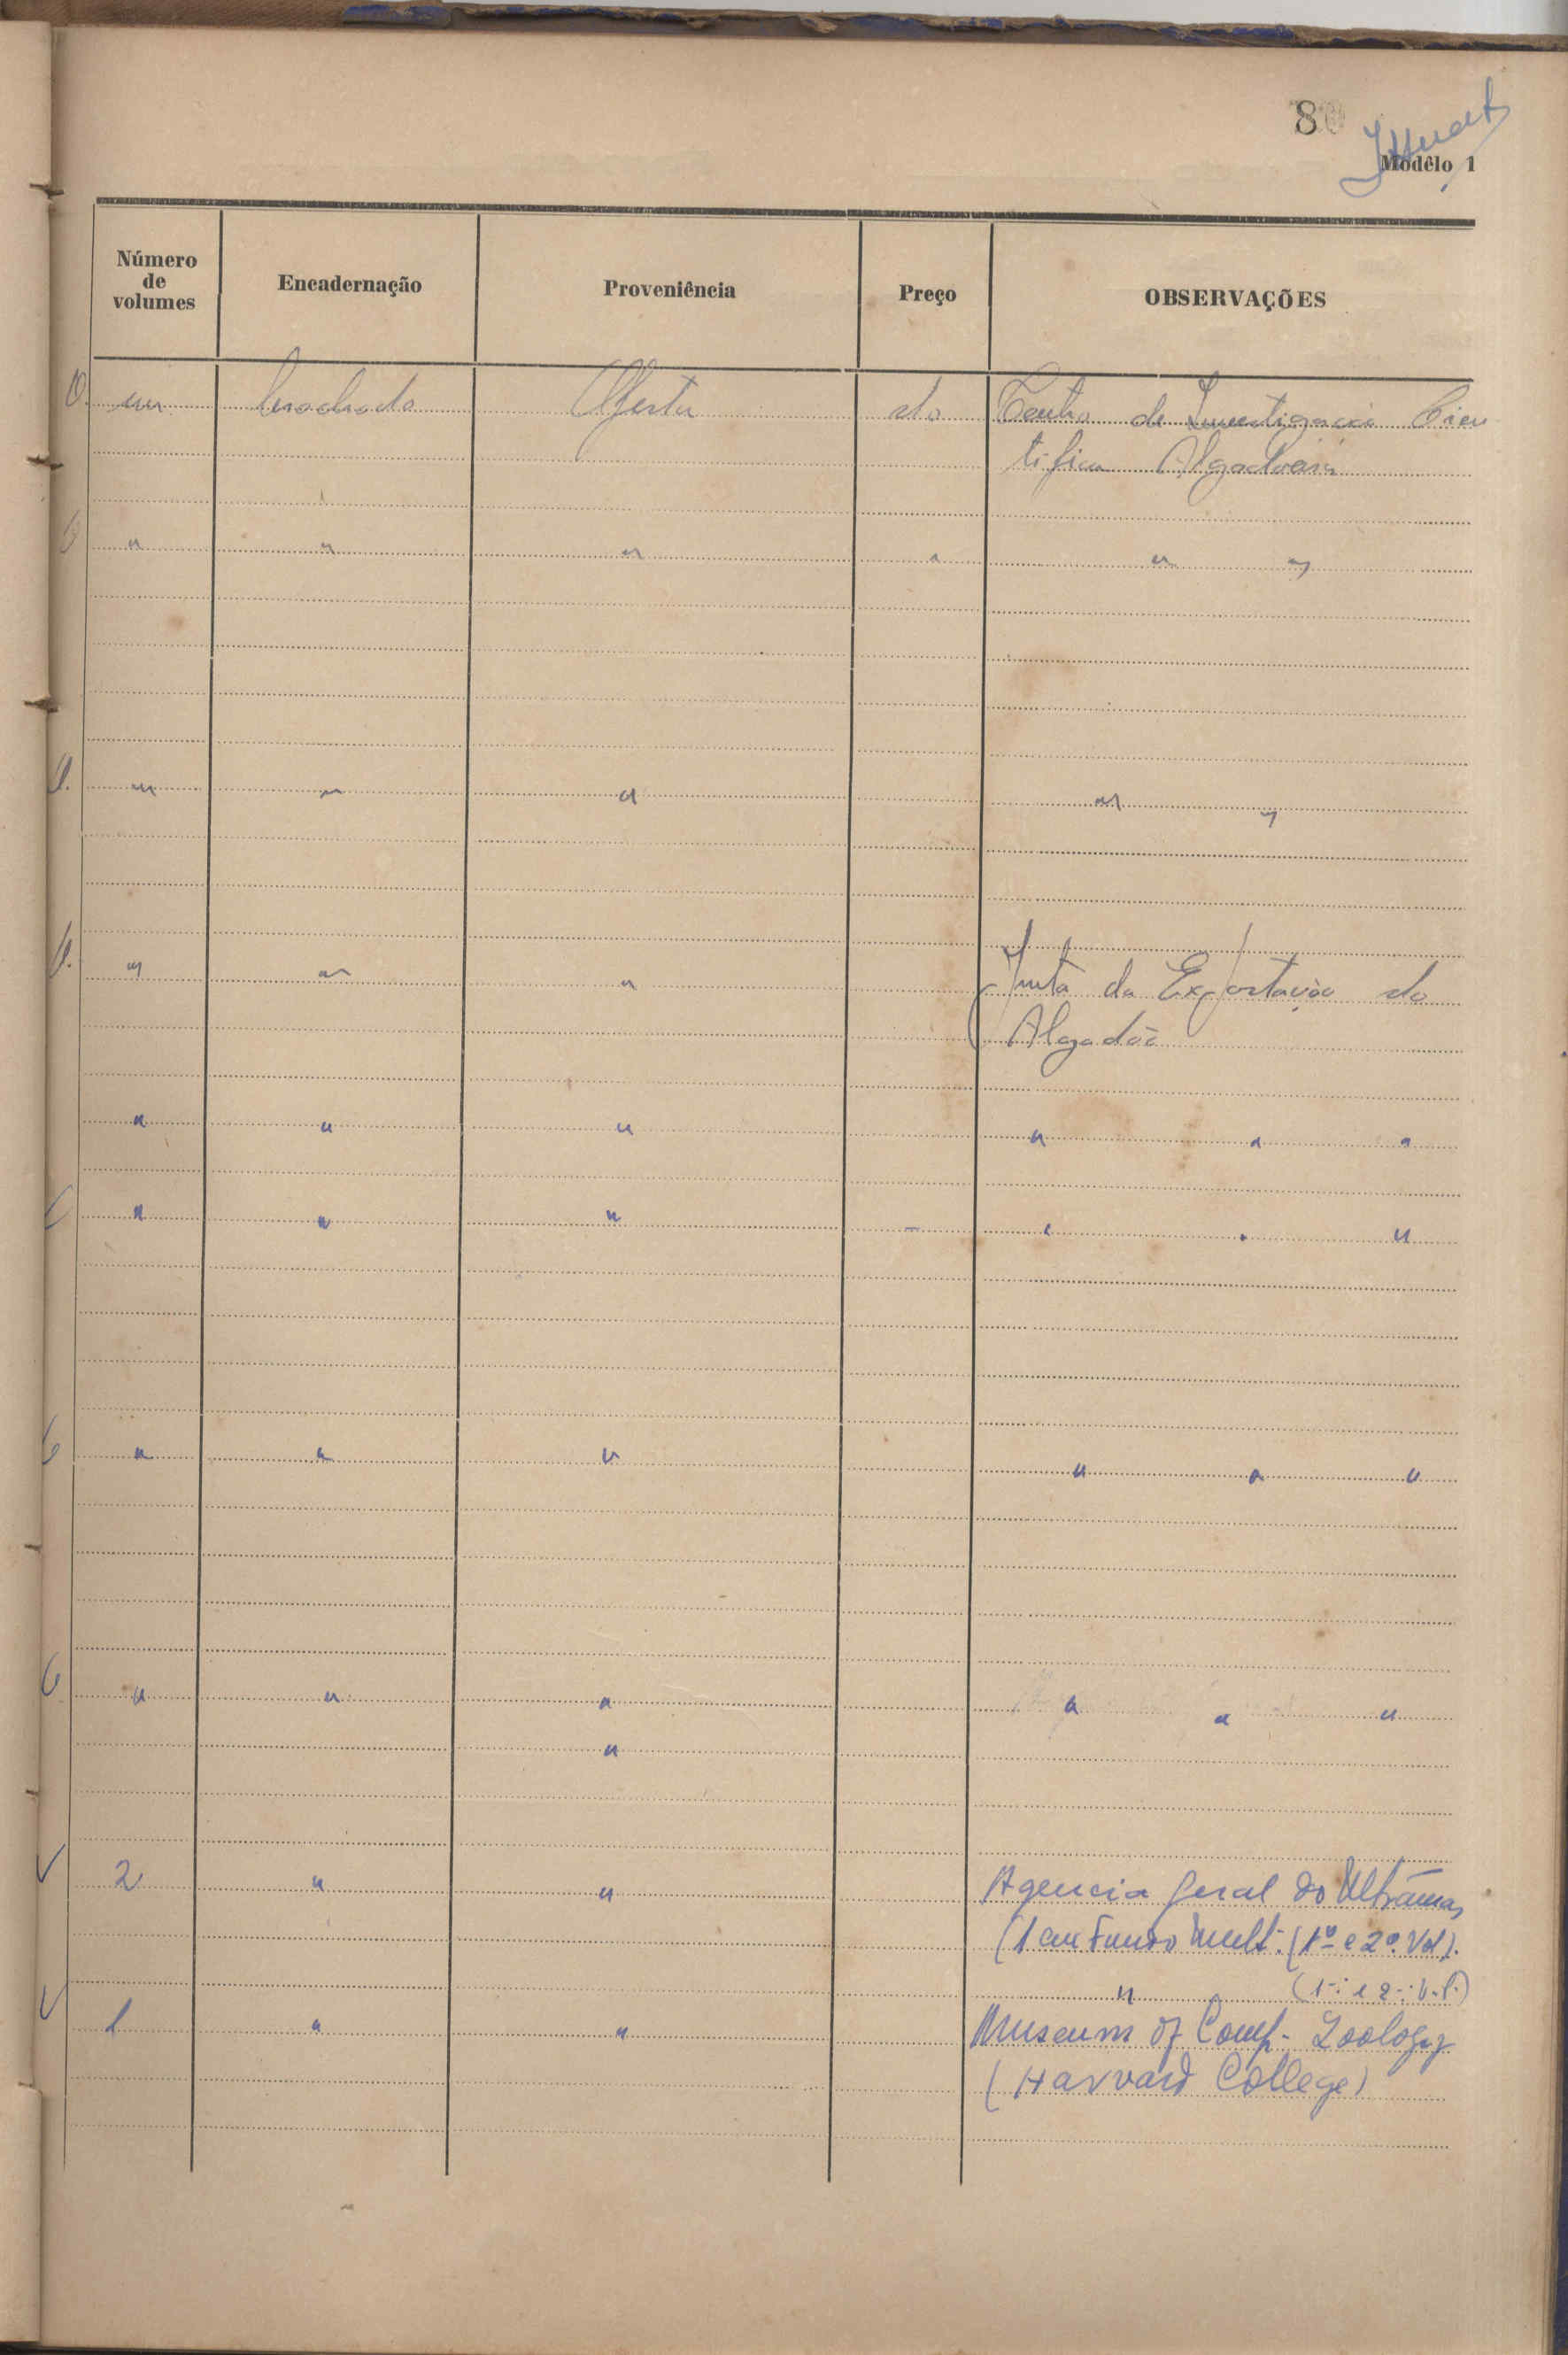 80
Modêlo 1
Número de volumes Encadernação Proveniência Preço OBSERVAÇÕES
um Brochado Oferta do Centro de Investigação Cien
tífica Algodoeira
" " " " " "
" " " " "
" " " Junta da Exportação do
Algodão
" " " " " "
" " " - " " "
" " " " " "
" " " " " "
"
2 " " Agencia Geral do Ultramar
(1 em Fundo Mult. (1º e 2º Vol).
"
1 " " Museum of Comp. Zoology
(Harvard College)